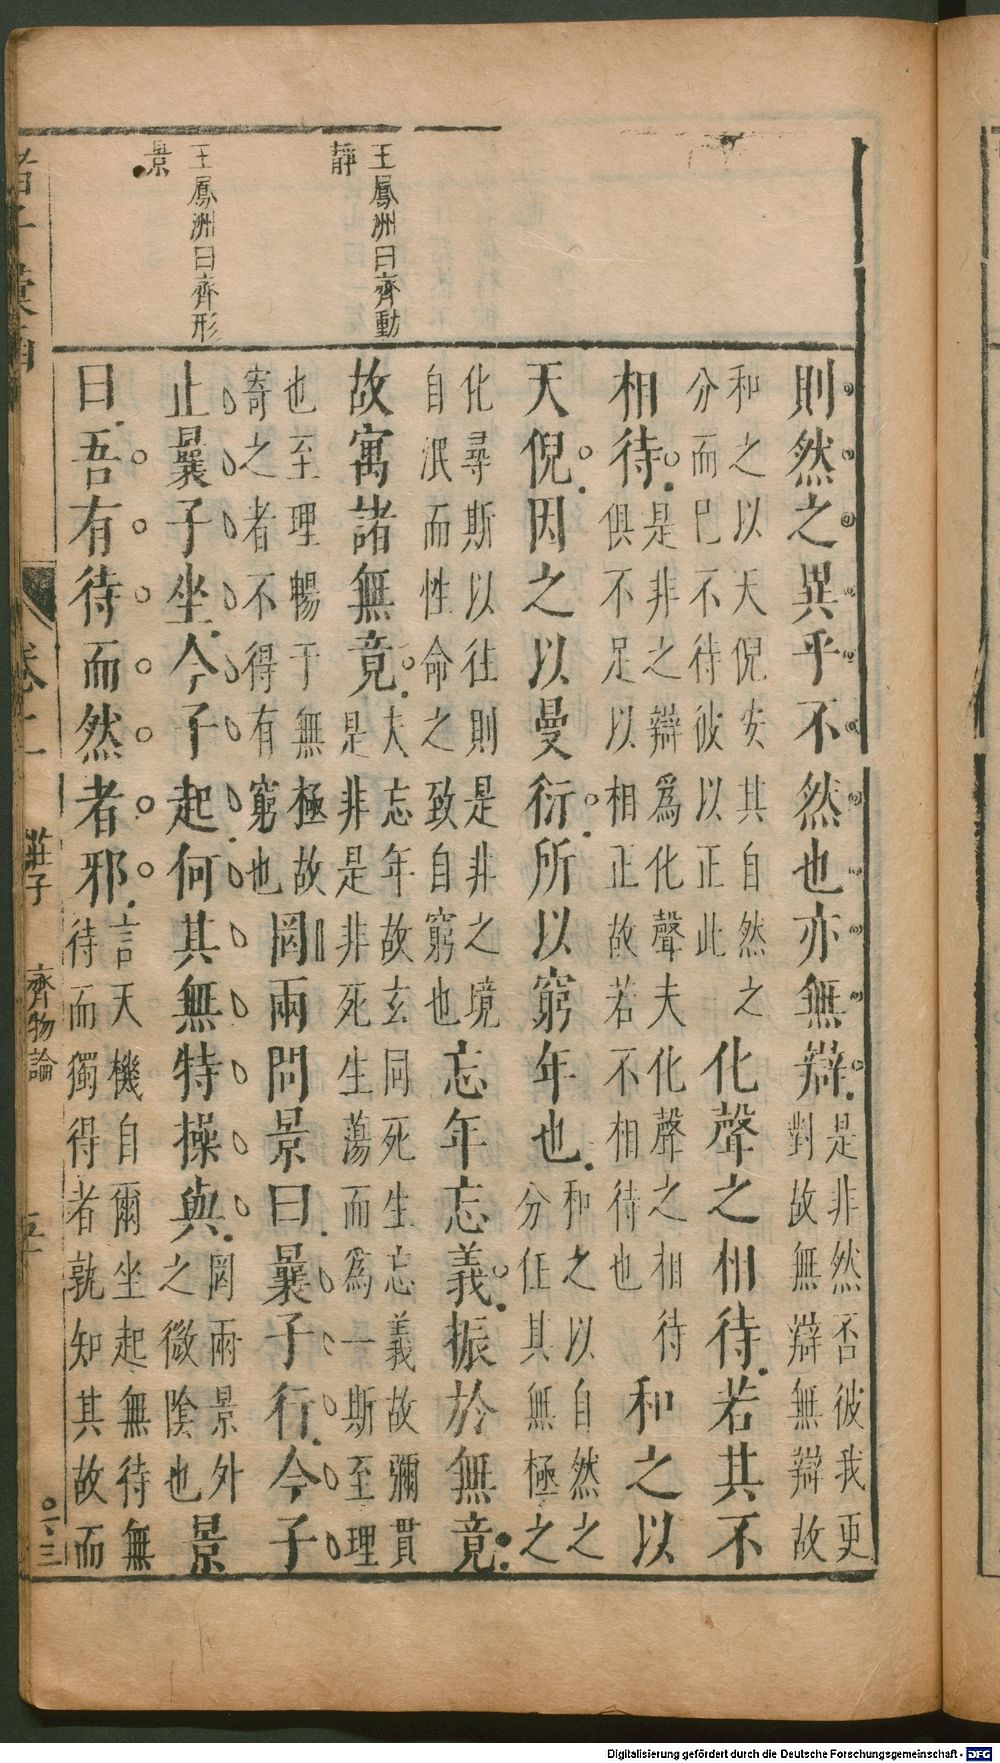 王鳳洲曰齊動
靜
王鳳洲曰齊形
景
則然之異乎不然也亦無辯是非然否彼我更
對故無辯無辯故
和之以天倪安其自然之
分而已不待彼以正此
化聲之相待若其不
相待是非之辯爲化聲夫化聲之相待
俱不足以相正故若不相待也
和之以
天倪因之以曼衍所以窮年也和之以自然之
分任其無極之
化尋斯以往則是非之境
自泯而性命之致自窮也
忘年忘義振於無竟
故寓諸無竟夫忘年故玄同死生忘義故彌貫
是非是非死生蕩而爲一斯至理
也至理暢于無極故
寄之者不得有窮也
罔兩問景曰曩子行今子
止曩子坐今子起何其無特操與罔兩景外
之微陰也
景
曰吾有待而然者邪言天機自爾坐起無待無
待而獨得者孰知其故而
卷二
莊子
齊物論
Digitalisierung gefördert durch die Deutsche Forschungsgemeinschaft - DFG